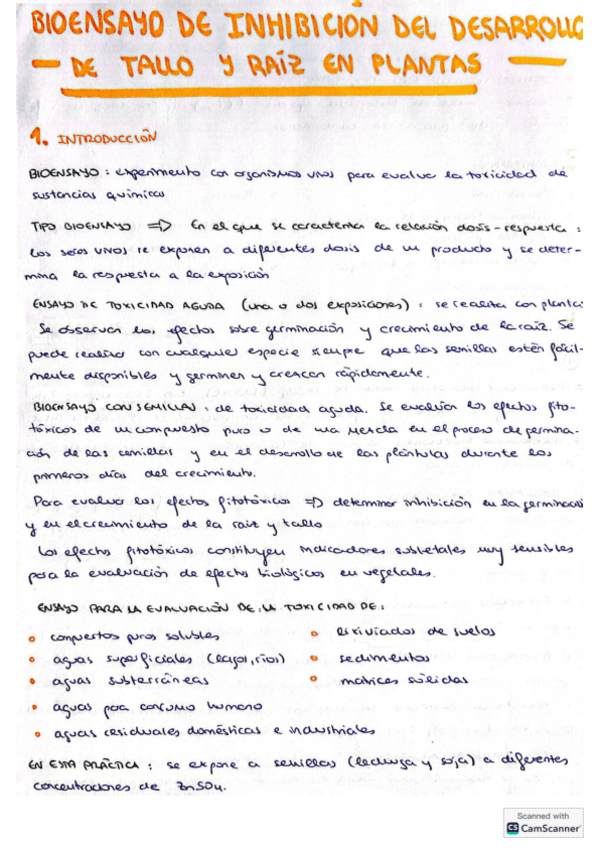 BIOENSAYO DE INHIBICIÓN DEL DESARROLLO
— DE TALLO Y RAÍZ EN PLANTAS —
1. INTRODUCCIÓN
BIOENSAYO: experimento con organismos vivos para evaluar la toxicidad de
sustancias químicas
TIPO BIOENSAYO => En el que se caracteriza la relación dosis-respuesta:
los seres vivos se exponen a diferentes dosis de un producto y se deter-
mina la respuesta a la exposición
ENSAYO DE TOXICIDAD AGUDA (una o dos exposiciones): se realiza con plantas
Se observan los efectos sobre germinación y crecimiento de la raíz. Se
puede realizar con cualquier especie siempre que las semillas estén fácil-
mente disponibles y germinen y crezcan rápidamente.
BIOENSAYO CON SEMILLAS: de toxicidad aguda. Se evalúan los efectos fito-
tóxicos de un compuesto puro o de una mezcla en el proceso de germina-
ción de las semillas y en el desarrollo de las plántulas durante los
primeros días del crecimiento.
Para evaluar los efectos fitotóxicos => determinar inhibición en la germinació
y en el crecimiento de la raíz y tallo
Los efectos fitotóxicos constituyen indicadores subletales muy sensibles
para la evaluación de efectos biológicos en vegetales.
ENSAYO PARA LA EVALUACIÓN DE LA TOXICIDAD DE:
• compuestos puros solubles
• aguas superficiales (lagos, ríos)
• aguas subterráneas
• aguas para consumo humano
• aguas residuales domésticas e industriales
• lixiviados de suelos
• sedimentos
• matrices sólidas
EN ESTA PRÁCTICA: se expone a semillas (lechuga y soja) a diferentes
concentraciones de ZnSO4.
Scanned with
CS CamScanner